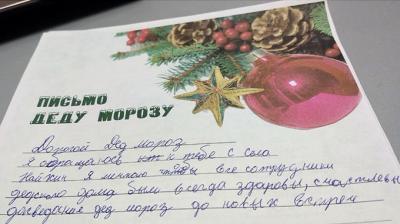 ПИСЬМО
ДЕДУ МОРОЗУ
Дорогой Дед мороз
Я обращаюсь к тебе с села
Найкин Я мечтаю чтобы все сотрудники
детского дома были всегда здоровы, счастлевы
досведание дед мороз до новых встреч